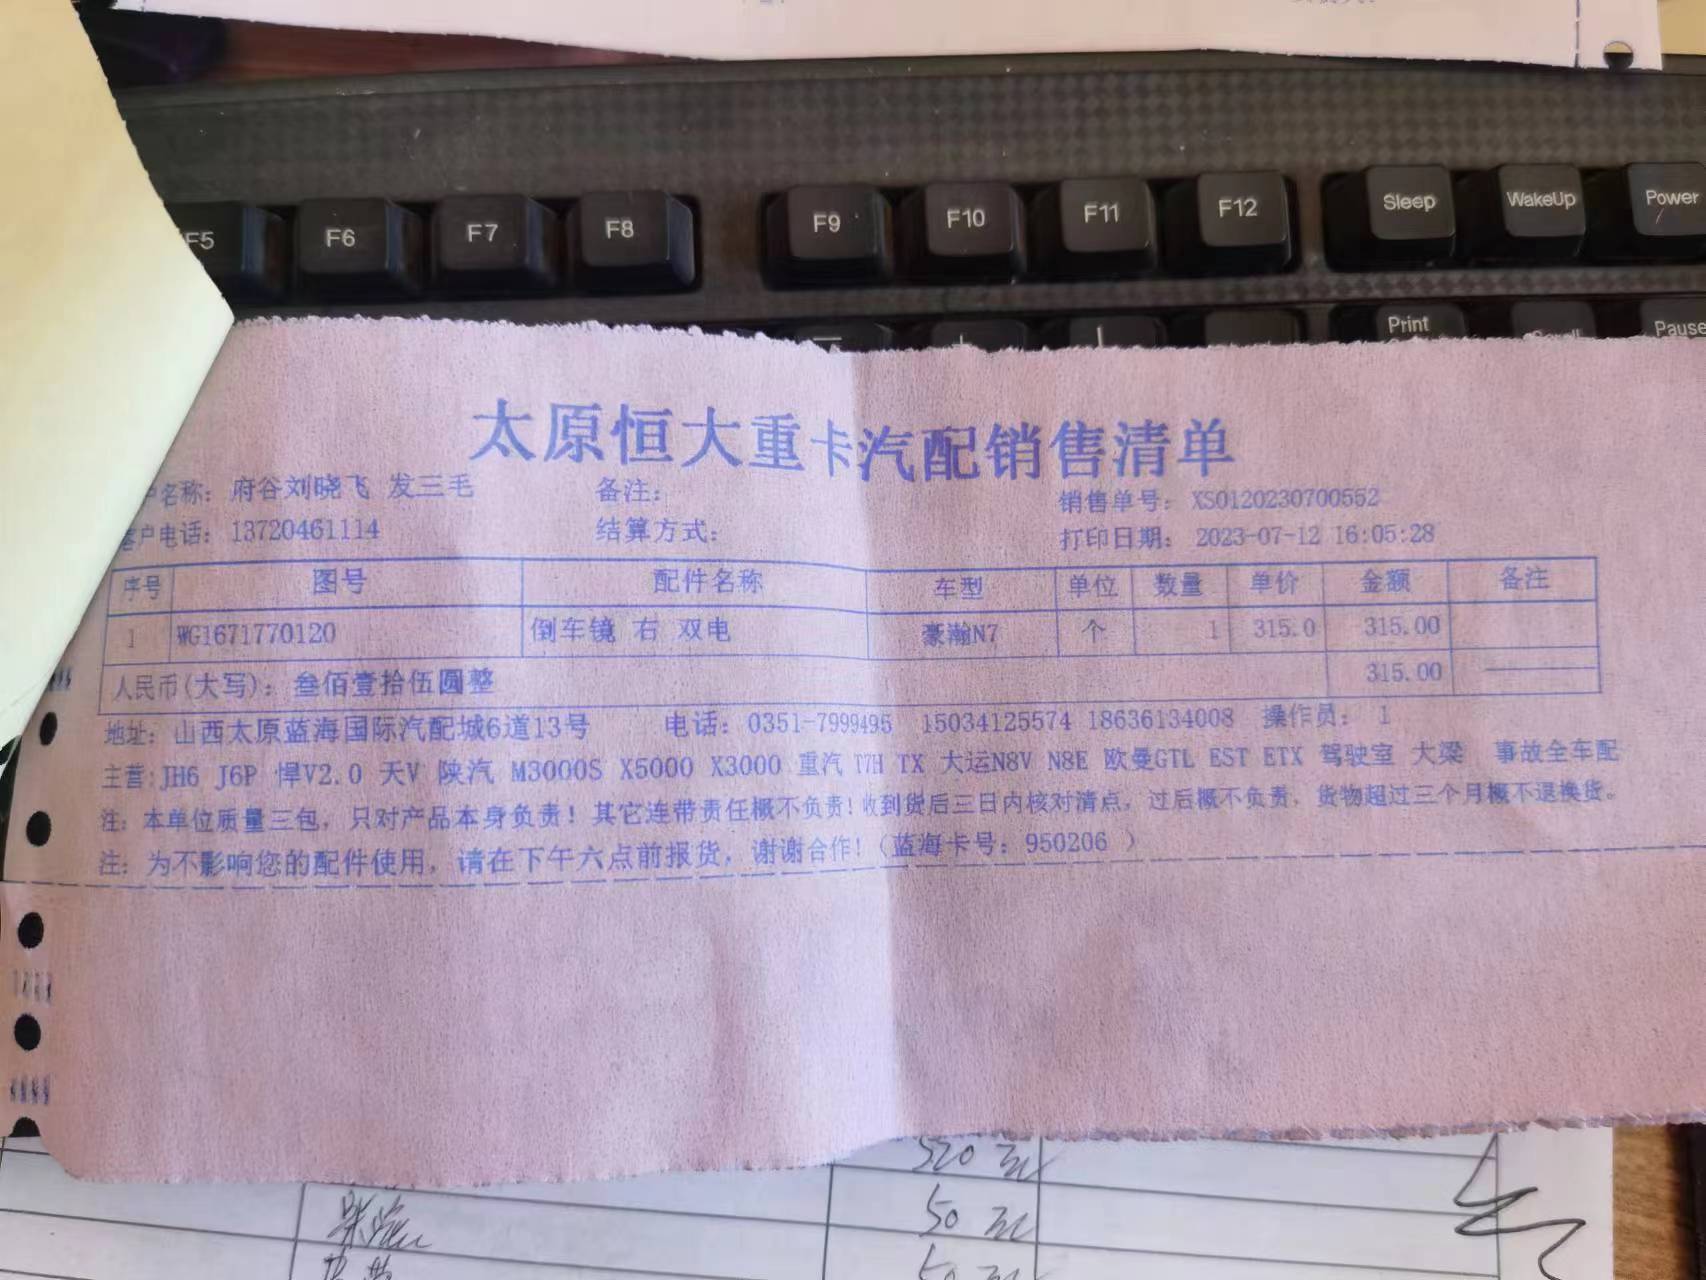 F5 F6 F7 F8 F9 F10 F11 F12 Sleep WakeUp Power
Print Pause
太原恒大重卡汽配销售清单
户名称：府谷刘晓飞 发三毛 备注： 销售单号：XS0120230700552
客户电话：13720461114 结算方式： 打印日期：2023-07-12 16:05:28
序号 图号 配件名称 车型 单位 数量 单价 金额 备注
1 WG1671770120 倒车镜 右 双电 豪瀚N7 个 1 315.0 315.00
人民币(大写)：叁佰壹拾伍圆整 315.00
地址：山西太原蓝海国际汽配城6道13号 电话：0351-7999495 15034125574 18636134008 操作员：1
主营:JH6 J6P 悍V2.0 天V 陕汽 M3000S X5000 X3000 重汽 T7H TX 大运N8V N8E 欧曼GTL EST ETX 驾驶室 大梁 事故全车配
注：本单位质量三包，只对产品本身负责！其它连带责任概不负责!收到货后三日内核对清点，过后概不负责，货物超过三个月概不退换货。
注：为不影响您的配件使用，请在下午六点前报货，谢谢合作!（蓝海卡号：950206 ）
520
50
50